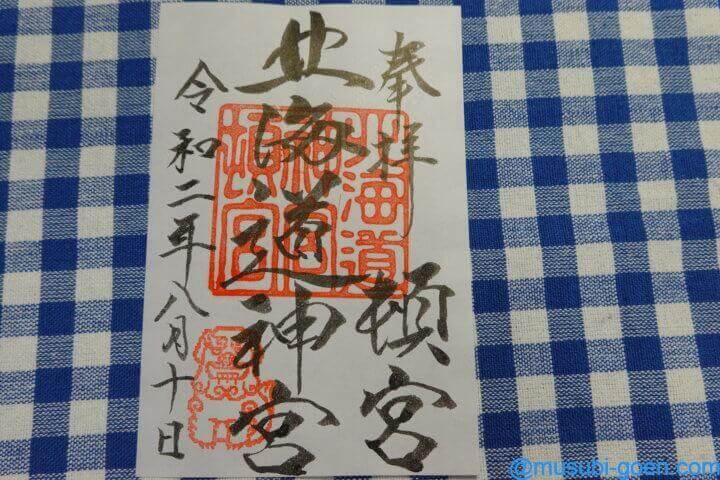 奉拝
頓宮
北海道神宮
令和二年八月十日
北海道
神宮
頓宮
@musubi-goen.com